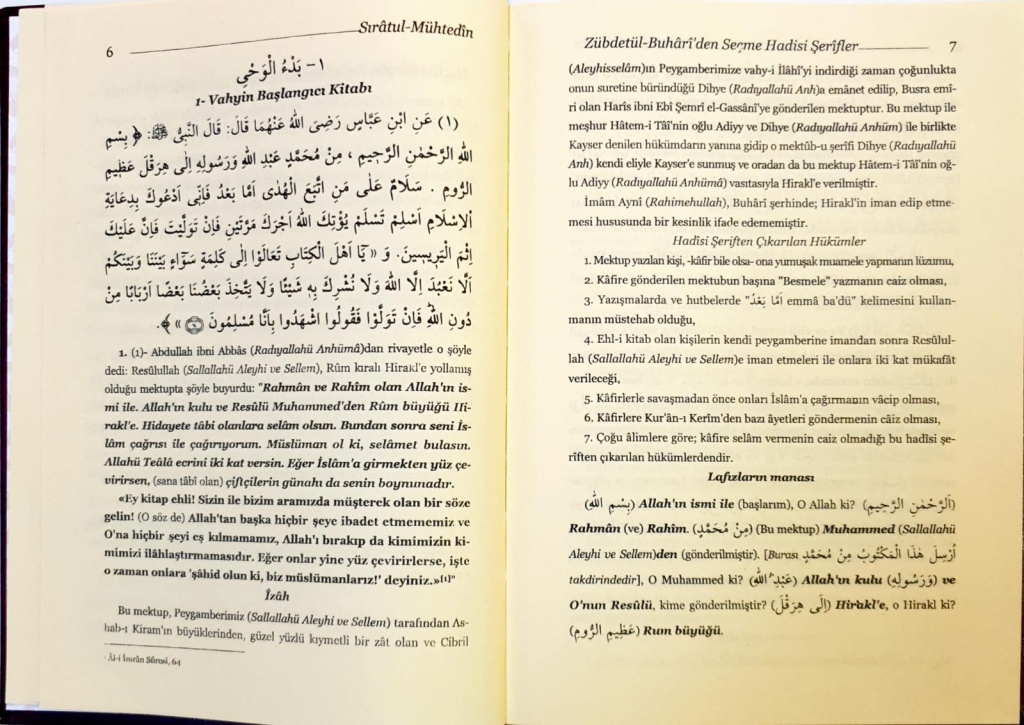 6
Sırâtul-Mühtedîn
١- بَدْءُ الْوَحْيِ
1- Vahyin Başlangıcı Kitabı
(١) عَنِ ابْنِ عَبَّاسٍ رَضِىَ اللّٰهُ عَنْهُمَا قَالَ: قَالَ النَّبِىُّ ﷺ: ﴿ بِسْمِ
اللّٰهِ الرَّحْمٰنِ الرَّحِيمِ ، مِنْ مُحَمَّدٍ عَبْدِ اللّٰهِ وَرَسُولِهِ اِلٰى هِرَقْلَ عَظِيمِ
الرُّومِ . سَلَامٌ عَلٰى مَنِ اتَّبَعَ الْهُدٰى اَمَّا بَعْدُ فَاِنِّى اَدْعُوكَ بِدِعَايَةِ
الْاِسْلَامِ اَسْلِمْ تَسْلَمْ يُؤْتِكَ اللّٰهُ اَجْرَكَ مَرَّتَيْنِ فَاِنْ تَوَلَّيْتَ فَاِنَّ عَلَيْكَ
اِثْمَ الْيَرِيسِينَ. وَ «يَٓا اَهْلَ الْكِتَابِ تَعَالَوْا اِلٰى كَلِمَةٍ سَوَٓاءٍ بَيْنَنَا وَبَيْنَكُمْ
اَلَّا نَعْبُدَ اِلَّا اللّٰهَ وَلَا نُشْرِكَ بِهٖ شَيْئًا وَلَا يَتَّخِذَ بَعْضُنَا بَعْضًا اَرْبَابًا مِنْ
دُونِ اللّٰهِ فَاِنْ تَوَلَّوْا فَقُولُوا اشْهَدُوا بِاَنَّا مُسْلِمُونَ » ﴾.
1. (1)- Abdullah ibni Abbâs (Radıyallahü Anhümâ)dan rivayetle o şöyle
dedi: Resûlullah (Sallallahü Aleyhi ve Sellem), Rûm kıralı Hirakl'e yollamış
olduğu mektupta şöyle buyurdu: "Rahmân ve Rahîm olan Allah'ın is-
mi ile. Allah'ın kulu ve Resûlü Muhammed'den Rûm büyüğü Hi-
rakl'e. Hidayete tâbi olanlara selâm olsun. Bundan sonra seni İs-
lâm çağrısı ile çağırıyorum. Müslüman ol ki, selâmet bulasın.
Allahü Teâlâ ecrini iki kat versin. Eğer İslâm'a girmekten yüz çe-
virirsen, (sana tâbî olan) çiftçilerin günahı da senin boynunadır.
«Ey kitap ehli! Sizin ile bizim aramızda müşterek olan bir söze
gelin! (O söz de) Allah'tan başka hiçbir şeye ibadet etmememiz ve
O'na hiçbir şeyi eş kılmamamız, Allah'ı bırakıp da kimimizin ki-
mimizi ilâhlaştırmamasıdır. Eğer onlar yine yüz çevirirlerse, işte
o zaman onlara 'şâhid olun ki, biz müslümanlarız!' deyiniz.»[1]"
Îzâh
Bu mektup, Peygamberimiz (Sallallahü Aleyhi ve Sellem) tarafından As-
hab-ı Kiram'ın büyüklerinden, güzel yüzlü kıymetli bir zât olan ve Cibril
¹ Âl-i İmrân Sûresi, 64
Zübdetül-Buhârî'den Seçme Hadisi Şerîfler
7
(Aleyhisselâm)ın Peygamberimize vahy-i İlâhî'yi indirdiği zaman çoğunlukta
onun suretine büründüğü Dihye (Radıyallahü Anh)a emânet edilip, Busra emî-
ri olan Haris ibni Ebî Şemri el-Gassânî'ye gönderilen mektuptur. Bu mektup ile
meşhur Hâtem-i Tâî'nin oğlu Adiyy ve Dihye (Radıyallahü Anhüm) ile birlikte
Kayser denilen hükümdarın yanına gidip o mektûb-u şerîfi Dihye (Radıyallahü
Anh) kendi eliyle Kayser'e sunmuş ve oradan da bu mektup Hâtem-i Tâî'nin oğ-
lu Adiyy (Radıyallahü Anhümâ) vasıtasıyla Hirakl'e verilmiştir.
İmâm Aynî (Rahimehullah), Buhâri şerhinde; Hirakl'in iman edip etme-
mesi hususunda bir kesinlik ifade edememiştir.
Hadîsi Şeriften Çıkarılan Hükümler
1. Mektup yazılan kişi, -kâfir bile olsa- ona yumuşak muamele yapmanın lüzumu,
2. Kâfire gönderilen mektubun başına "Besmele" yazmanın caiz olması,
3. Yazışmalarda ve hutbelerde "اَمَّا بَعْدُ emmâ ba'dü" kelimesini kullan-
manın müstehab olduğu,
4. Ehl-i kitab olan kişilerin kendi peygamberine imandan sonra Resûlul-
lah (Sallallahü Aleyhi ve Sellem)e iman etmeleri ile onlara iki kat mükâfat
verileceği,
5. Kâfirlerle savaşmadan önce onları İslâm'a çağırmanın vâcip olması,
6. Kâfirlere Kur'ân-ı Kerîm'den bazı âyetleri göndermenin câiz olması,
7. Çoğu âlimlere göre; kâfire selâm vermenin caiz olmadığı bu hadîsi şe-
rîften çıkarılan hükümlerdendir.
Lafızların manası
(بِسْمِ اللّٰهِ) Allah'ın ismi ile (başlarım), O Allah ki? (اَلرَّحْمٰنِ الرَّحِيمِ)
Rahmân (ve) Rahîm. (مِنْ مُحَمَّدٍ) (Bu mektup) Muhammed (Sallallahü
Aleyhi ve Sellem)den (gönderilmiştir). [Burası اُرْسِلَ هٰذَا الْمَكْتُوبُ مِنْ مُحَمَّدٍ
takdirindedir], O Muhammed ki? (عَبْدِ اللّٰهِ) Allah'ın kulu (وَرَسُولِهِ) ve
O'nun Resûlü, kime gönderilmiştir? (اِلٰى هِرَقْلَ) Hirakl'e, o Hirakl ki?
(عَظِيمِ الرُّومِ) Rum büyüğü.